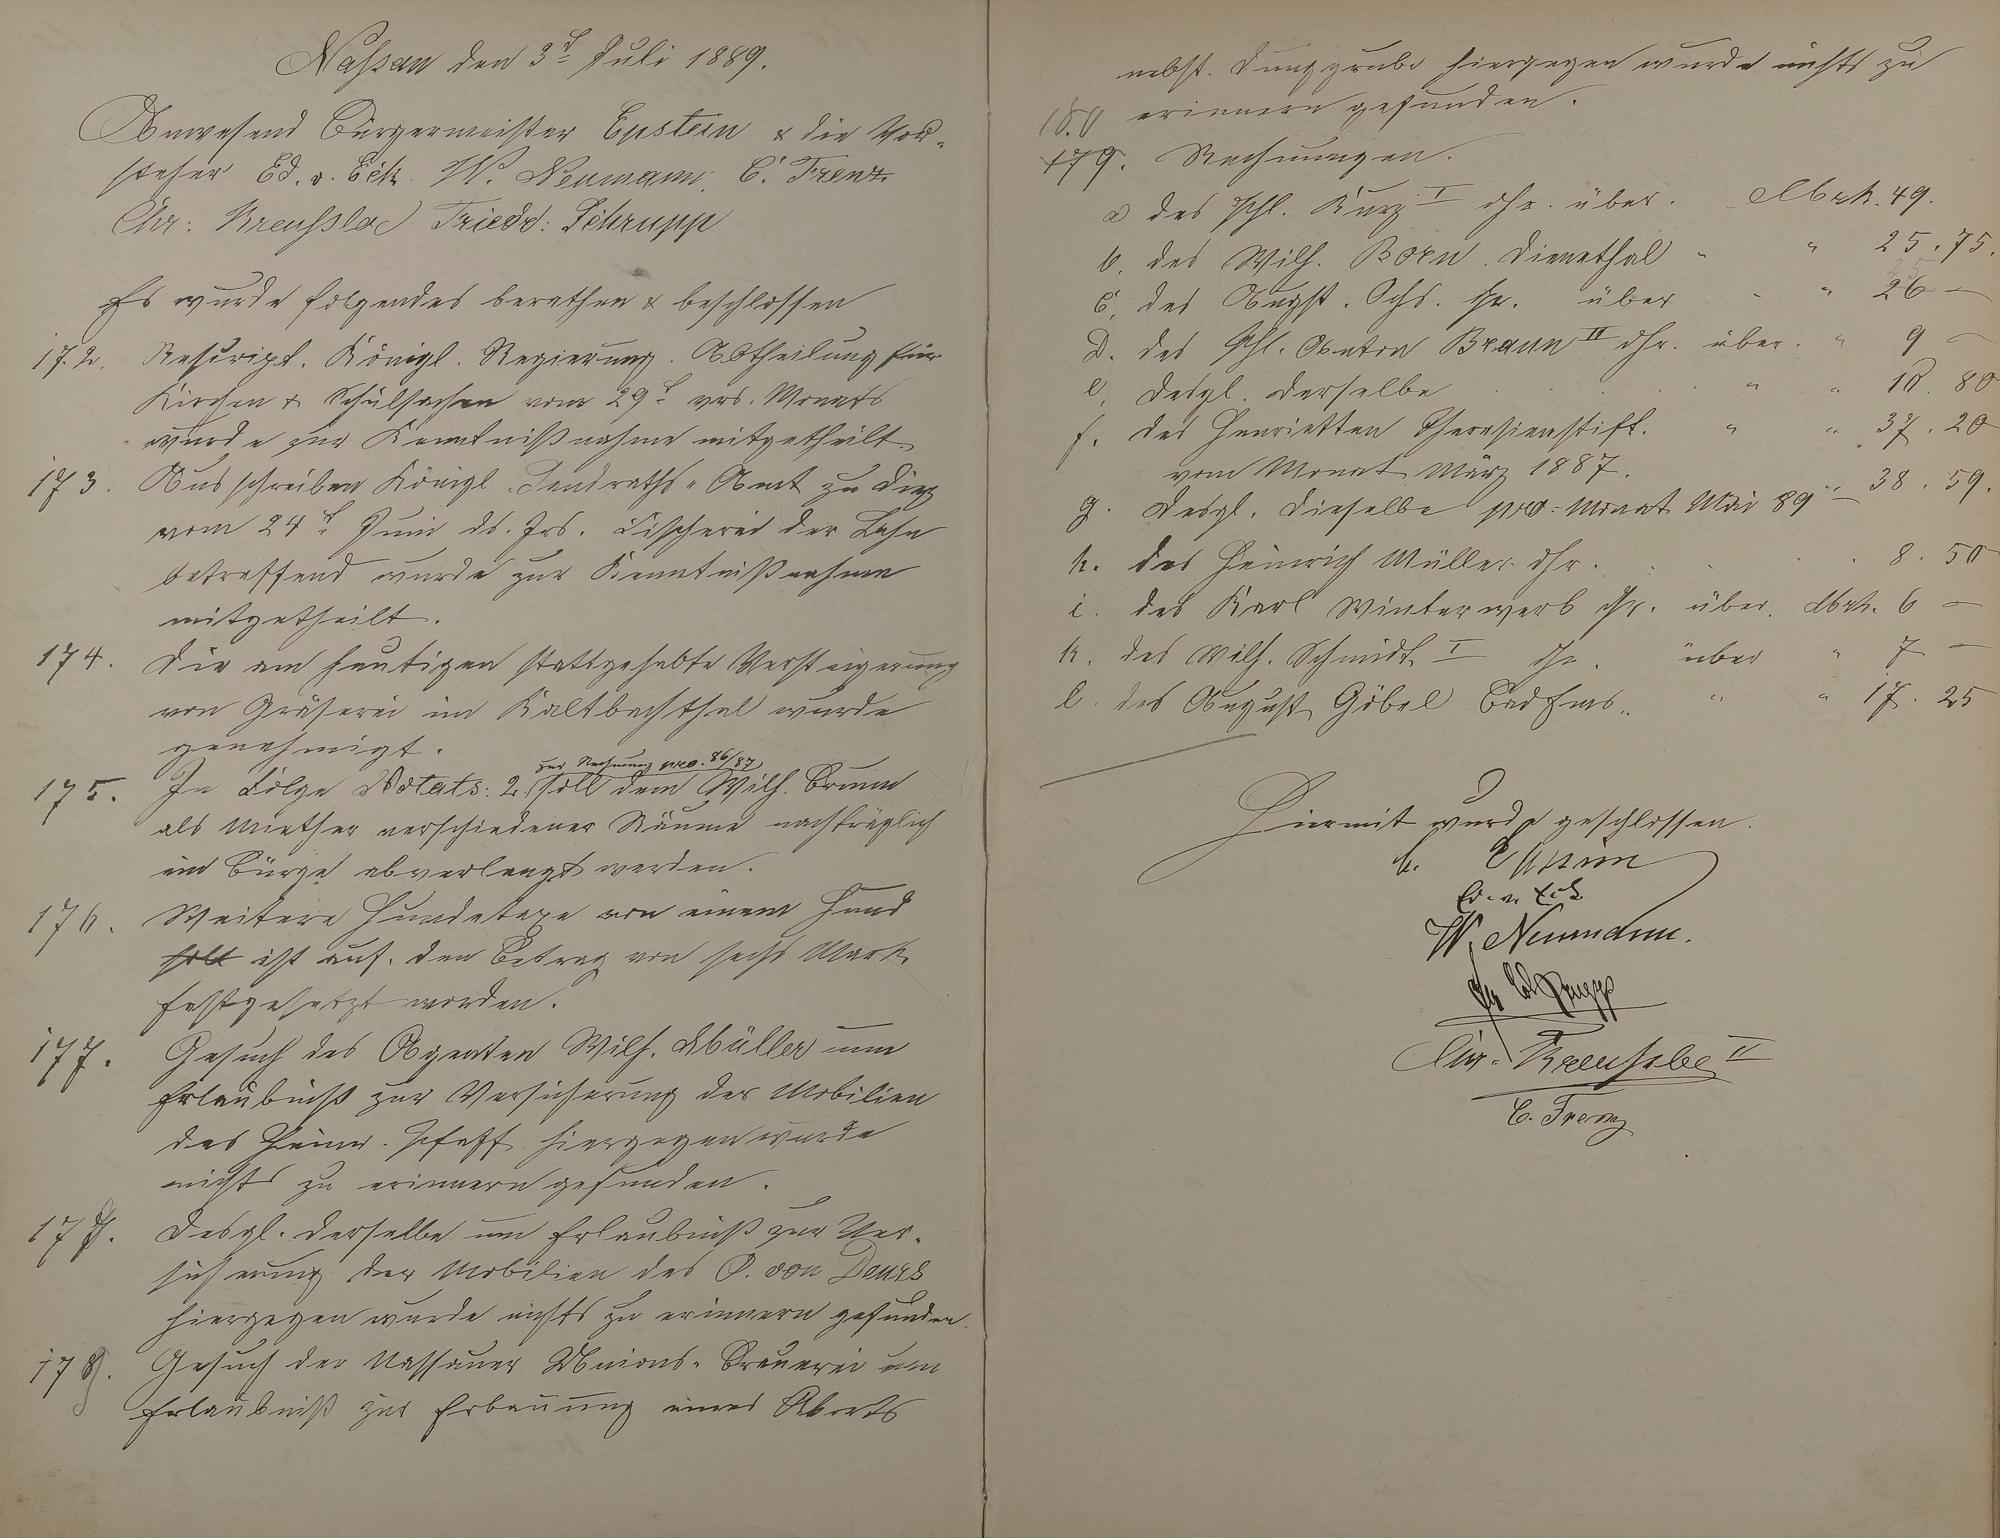 Nassau den 3t Juli 1889.
Anwesend Bürgermeister Epstein & die Vor-
steher Ed. v. Eck. W. Neumann, C. Frenz
Chr: Friedr: Schrupp
Es wurde folgendes berathen & beschlossen
172. Rescript. Königl. Regierung. Abtheilung für
Kirchen & Schulsachen vom 29t vrs. Monats
wurde zur Kenntnißnahme mitgetheilt
173. Ausschreiben Königl. Landraths-Amt zu Diez
vom 24t Juni ds. Jrs. Fischerei der Lahn
betreffend wurde zur Kenntnißnahme
mitgetheilt.
174. Die am heutigen stattgehabte Versteigerung
von Gräserei im Kaltbachthal wurde
genehmigt.
zur Rechnung pro. 86/87
175. In Folge Notats: 2. soll dem Wilh. Bruno
als Miether verschiedener Räume nachträglich
ein Bürge abverlangt werden.
176. Weitere Hundetaxe von einem Hund
soll ist auf. den Betrag von sechs Mark
festgesetzt worden.
177. Gesuch des Agenten Wilh. Müller um
Erlaubniß zur Versicherung der Mobilien
des Heinr. Pfaff. hiergegen wurde
nichts zu erinnern gefunden.
178. Desgl. derselbe um Erlaubniß zur Ver-
sicherung der Mobilien des O. von
hiergegen wurde nichts zu erinnern gefunden.
179. Gesuch der Nassauer Unions-Brauerei um
Erlaubniß zur Erbauung eines Aborts
nebst. Dunggrube hiergegen wurde nichts zu
erinnern gefunden.
180
179. Rechnungen.
a des Phl. Kurz I dhr. über. Mrk. 49.
b. des Wilh. Born. Dienethal " " 25.75.
c. des August. Ochs. hr. über " 26 —
D. des Phl. Anton Braun II dhr. über. " 9 —
e, desgl. derselbe " " 10.80
f. des Henrietten Theresienstift. " " 37.20
vom Monat März 1887.
g. desgl. dieselbe pro Monat Mai 89 " 38.59.
h. des Heinrich Müller dhr. 8.50
i. des Karl Winterwerb hr. über. Mrk. 6 —
k. des Wilh. Schmidt I hr. über " 7 —
l. des August Göbel Bad Ems " " 17.25
Hiermit wurde geschlossen.
Epstein
Ed. v. Eck
W. Neumann.
Schrupp
Chr. II
C. Frenz